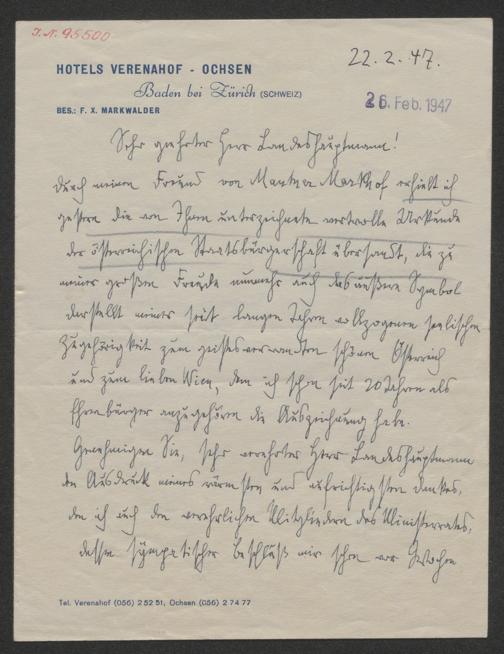 J.N. 95500
22. 2. 47.
HOTELS VERENAHOF - OCHSEN
Baden bei Zürich (SCHWEIZ)
BES.: F. X. MARKWALDER
26. Feb. 1947
Sehr geehrter Herr Landeshauptmann!
Durch meinen Freund von Mautner Markhof erhielt ich
gestern die von Ihnen unterzeichnete wertvolle Urkunde
der österreichischen Staatsbürgerschaft übersandt, die zu
meiner großen Freude nunmehr auch das äußere Symbol
darstellt meiner seit langen Jahren vollzogenen seelischen
Zugehörigkeit zum geistesverwandten schönen Österreich
und zum lieben Wien, dem ich schon seit 20 Jahren als
Ehrenbürger anzugehören die Auszeichnung habe.
Genehmigen Sie, sehr verehrter Herr Landeshauptmann
den Ausdruck meines wärmsten und aufrichtigsten Dankes,
den ich auch den verehrlichen Mitgliedern des Ministerrates,
dessen sympatischer Beschluß mir schon vor Wochen
Tel. Verenahof (056) 2 52 51, Ochsen (056) 2 74 77